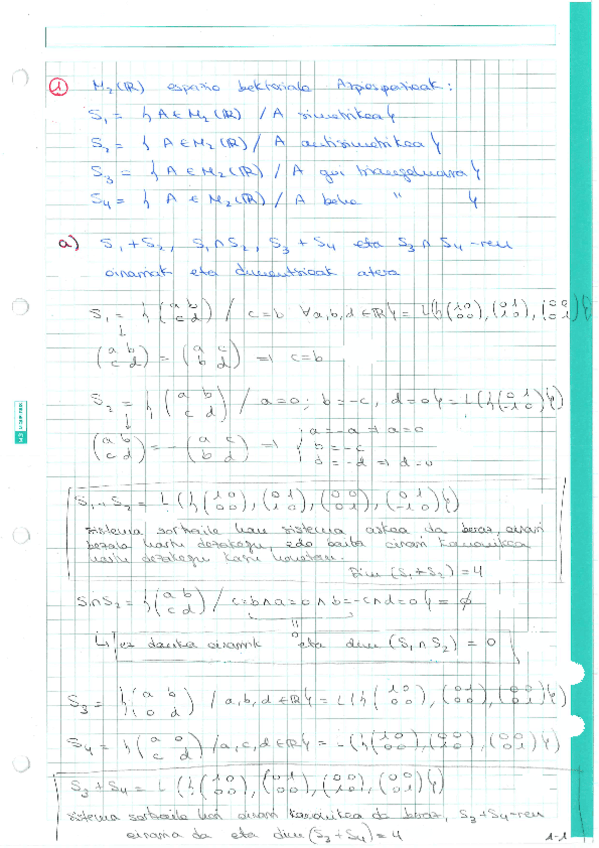 1 M₂(ℝ) espazio bektoriala Azpiespazioak:
S₁ = { A ∈ M₂(ℝ) / A simetrikoa }
S₂ = { A ∈ M₂(ℝ) / A antisimetrikoa }
S₃ = { A ∈ M₂(ℝ) / A goi triangeluarra }
S₄ = { A ∈ M₂(ℝ) / A behe " }
a) S₁+S₂, S₁∩S₂, S₃+S₄ eta S₃∩S₄-ren
oinarriak eta dimentsioak atera
S₁ = { (a b; c d) / c=b ∀a,b,d ∈ ℝ } = L({ (1 0; 0 0), (0 1; 1 0), (0 0; 0 1) })
↓
(a b; c d) = (a c; b d) ⇒ c=b
S₂ = { (a b; c d) / a=0; b=-c, d=0 } = L({ (0 1; -1 0) })
↓
(a b; c d) = -(a c; b d) ⇒ { a=-a ⇒ a=0
b=-c
d=-d ⇒ d=0
S₁+S₂ = L({ (1 0; 0 0), (0 1; 1 0), (0 0; 0 1), (0 1; -1 0) })
sistema sortzaile hau sistema askea da beraz, oinarri
bezala hartu dezakegu, edo baita oinarri kanonikoa
hartu dezakegu kasu honetan.
Dim (S₁+S₂) = 4
S₁∩S₂ = { (a b; c d) / c=b ∧ a=0 ∧ b=-c ∧ d=0 } = ∅
"
0
↳ ez dauka oinarririk eta dim (S₁∩S₂) = 0
S₃ = { (a b; 0 d) / a,b,d ∈ ℝ } = L({ (1 0; 0 0), (0 1; 0 0), (0 0; 0 1) })
S₄ = { (a 0; c d) / a,c,d ∈ ℝ } = L({ (1 0; 0 0), (0 0; 1 0), (0 0; 0 1) })
S₃+S₄ = L({ (1 0; 0 0), (0 1; 0 0), (0 0; 1 0), (0 0; 0 1) })
sistema sortzaile hori oinarri kanonikoa da beraz, S₃+S₄-ren
oinarria da eta dim (S₃+S₄) = 4
1-1